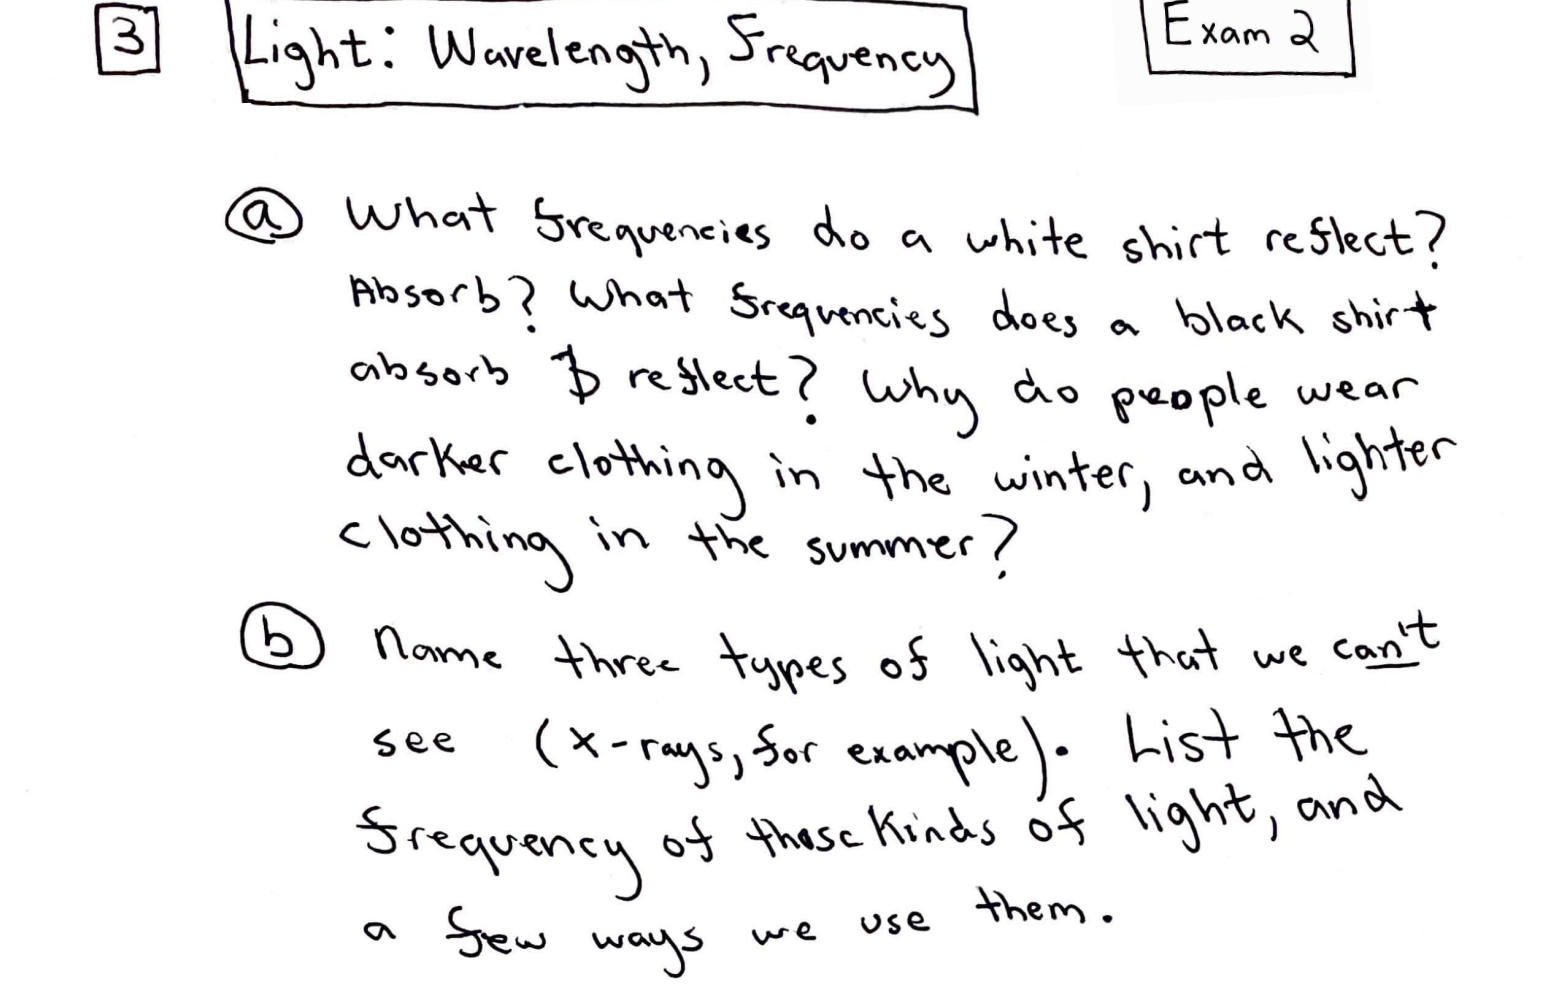 3 Light: Wavelength, Frequency Exam 2
a What frequencies do a white shirt reflect?
Absorb? What frequencies does a black shirt
absorb & reflect? Why do people wear
darker clothing in the winter, and lighter
clothing in the summer?
b Name three types of light that we can't
see (x-rays, for example). List the
frequency of these kinds of light, and
a few ways we use them.